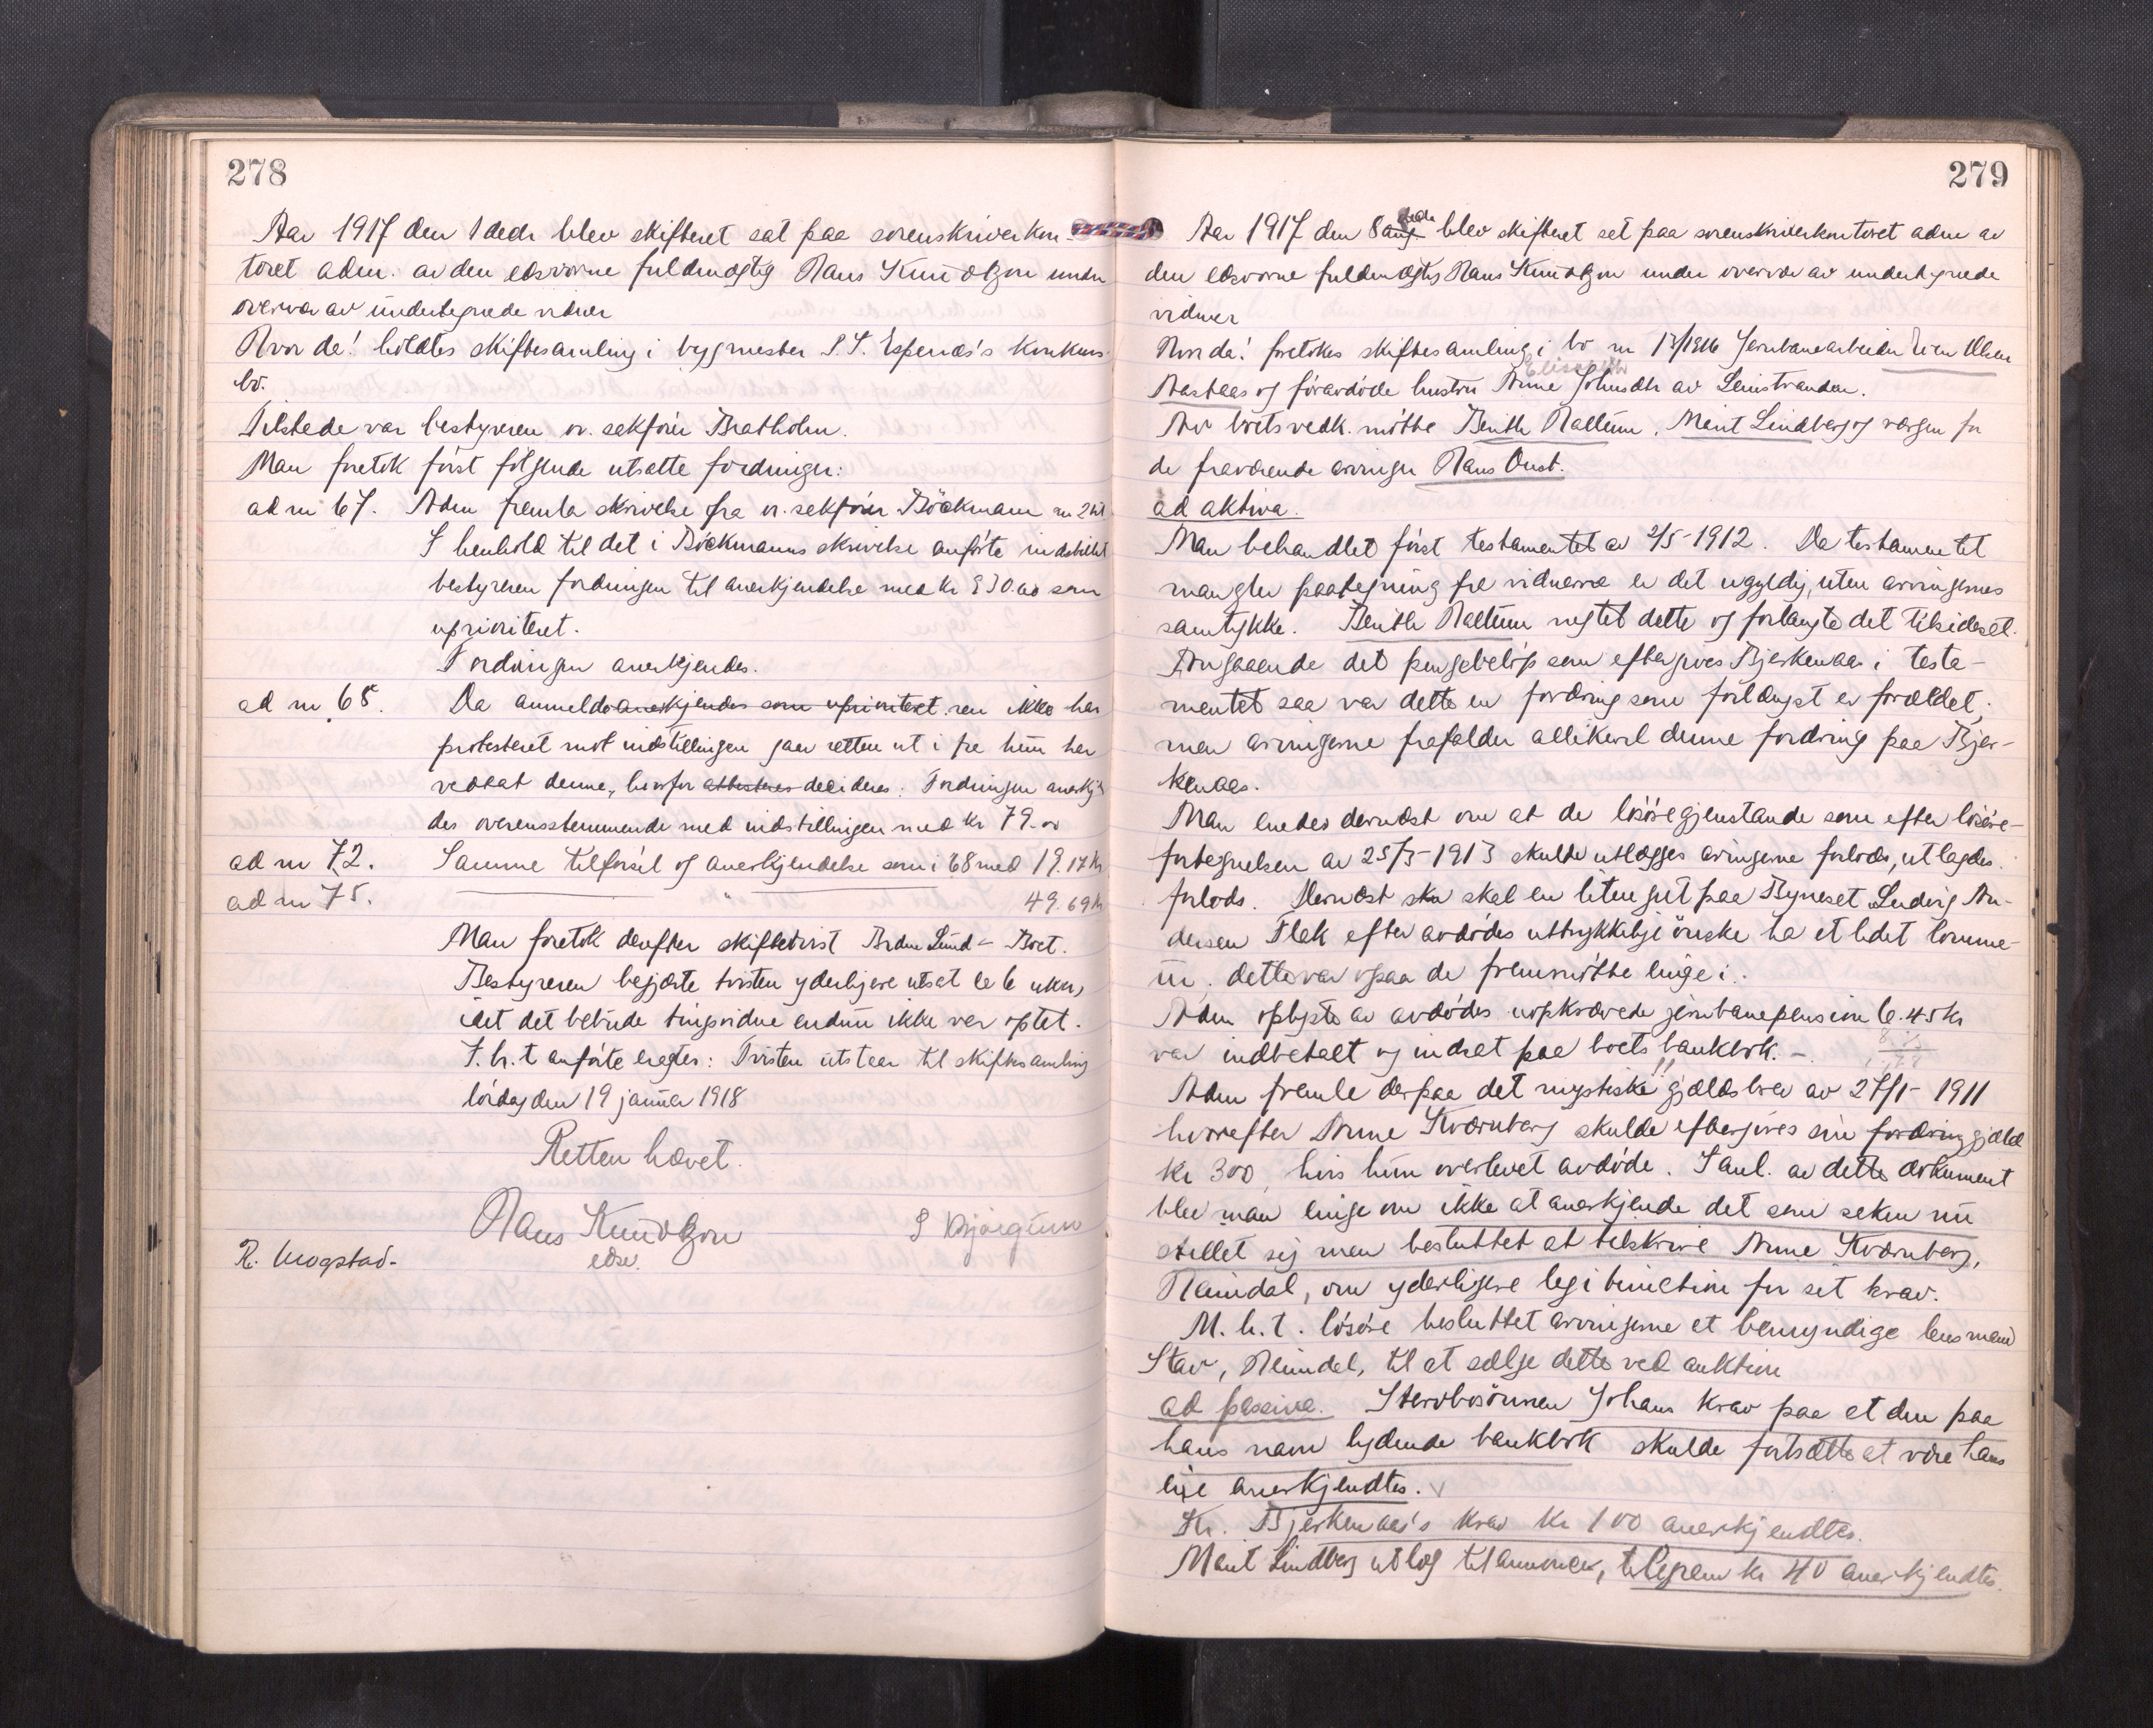 278
Aar 1917 den 1 decbr blev skifteret sat paa sorenskriverkon-
toret adm. av den edsvorne fuldmægtig Hans Knudtzon under
overvær av undertegnede vidner
Hvor da! holdtes skiftesamling i bygmester P. S. Espenæs's konkurs-
bo.
Tilstede var bestyreren or. sakfører Bratholm.
Man foretok først følgende utsatte fordringer:
ad nr 67. Adm. fremla skrivelse fra or. sakfører Böckmann
I henhold til det i Böckmanns skrivelse anførte indstillet
bestyreren fordringen til anerkjendelse med kr 930.00 som
uprioriteret.
Fordringen anerkjendes.
ad nr 68. Da anmelde anerkjendes som uprioriteret ren ikke har
protesteret mot indstillingen gaar retten ut i fra hun har
vedtat denne, hvorfor decideres: Fordringen anerkj-
des overensstemmende med indstillingen med kr 79.00
ad nr 72. Samme tilførsel og anerkjendelse som i 68 med 19.17 kr
ad nr 75. " 49.69 kr
Man foretok derefter skiftetvist Brdr Lund - Boet.
Bestyreren begjærte tvisten yderligere utsat 6 uker,
idet det bebudede tingsvidne endnu ikke var optat.
F. h. t. anførte eragtes: Tvisten utstaar til skiftesamling
lørdag den 19 januar 1918
Retten hævet.
Hans Knudtzon
edsv.
S Bjørgum
R. Mogstad-
279
Aar 1917 den 8 aug decbr blev skifteret sat paa sorenskriverkontoret adm av
den edsvorne fuldmægtig Hans Knudtzon under overvær av undertegnede
vidner
Hvor da! foretokes skiftesamling i bo nr 13/1916 Jernbanearbeider Iver Olsen
Elisabeth
Aastaas og føravdøde hustru Anne Johnsdtr av Leinstranden.
Av boets vedk. møtte Berith Hallem, Marit Lindberg og vergen for
de fraværende arvinger Hans Oust.
ad aktiva.
Man behandlet først testamentet av 2/5-1912. Da testamentet
mangler paategning fra vidnerne er det ugyldig, uten arvingernes
samtykke. Berith Hallem negtet dette og forlangte det tilsidesat.
Angaaende det pengebeløp som eftergives Bjerkenaas i testa-
mentet saa var dette en fordring som forlængst er forældet;
men arvingerne frafalder allikevel denne fordring paa Bjer-
kenaas.
Man enedes dernæst om at de løsøregjenstande som efter løsøre-
fortegnelsen av 25/5-1913 skulde utlægges arvingerne forlods, utlagdes
forlods. Dernæst ska skal en liten gut paa Byneset Ludvig An-
dersen Flak efter avdødes uttrykkelige ønske ha et litet lomme-
ur; dette var ogsaa de fremmøtte enige i.
Adm oplyste av avdødes uopkrævede jernbanepension 6.45 kr
var indbetalt og indsat paa boets bankbok. -
Adm fremla derpaa det mystiske!! gjældsbrev av 27/1-1911
hvorefter Anne Kværnberg skulde eftergives sin fordring gjæld
kr 300, hvis hun overlevet avdøde. I anl. av dette dokument
blev man enige om ikke at anerkjende det som saken nu
stillet sig men besluttet at tilskrive Anne Kværnberg,
Heimdal, om yderligere legitimation for sit krav.
M. h. t. løsøre besluttet arvingerne at bemyndige lensmand
Stav, Heimdal, til at sælge dette ved auktion
ad passiva. Stervbosønnen Johans krav paa at den paa
hans navn lydende bankbok skulde fortsætte at være hans
eie anerkjendtes.
Kr. Bjerkenaas's krav kr 100 anerkjendtes.
Marit Lindberg utlæg til annoncer, telegram kr 40 anerkjendtes.